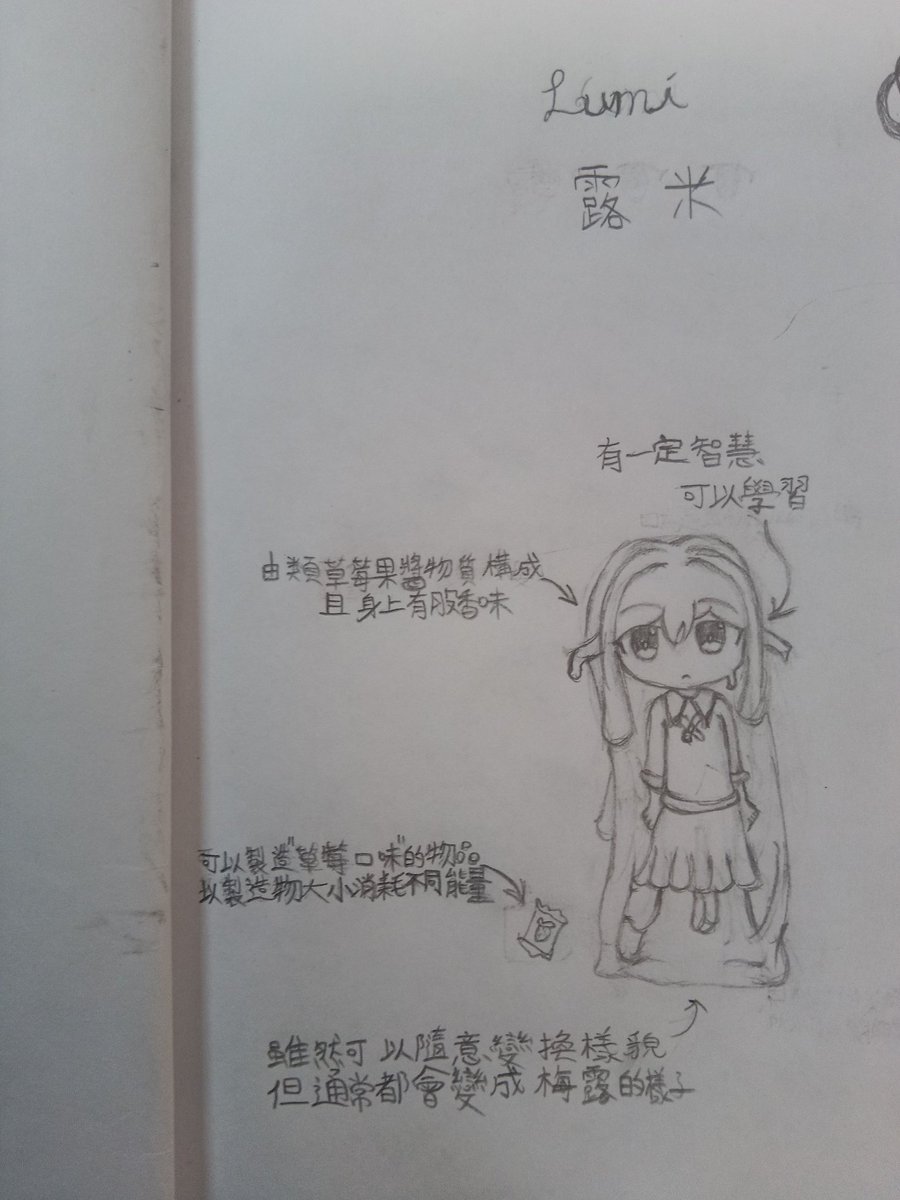 Lumi
露米
有一定智慧
可以學習
由類草莓果醬物質構成
且身上有股香味
可以製造"草莓口味"的物品
以製造物大小消耗不同能量
雖然可以隨意變換樣貌
但通常都會變成梅露的樣子